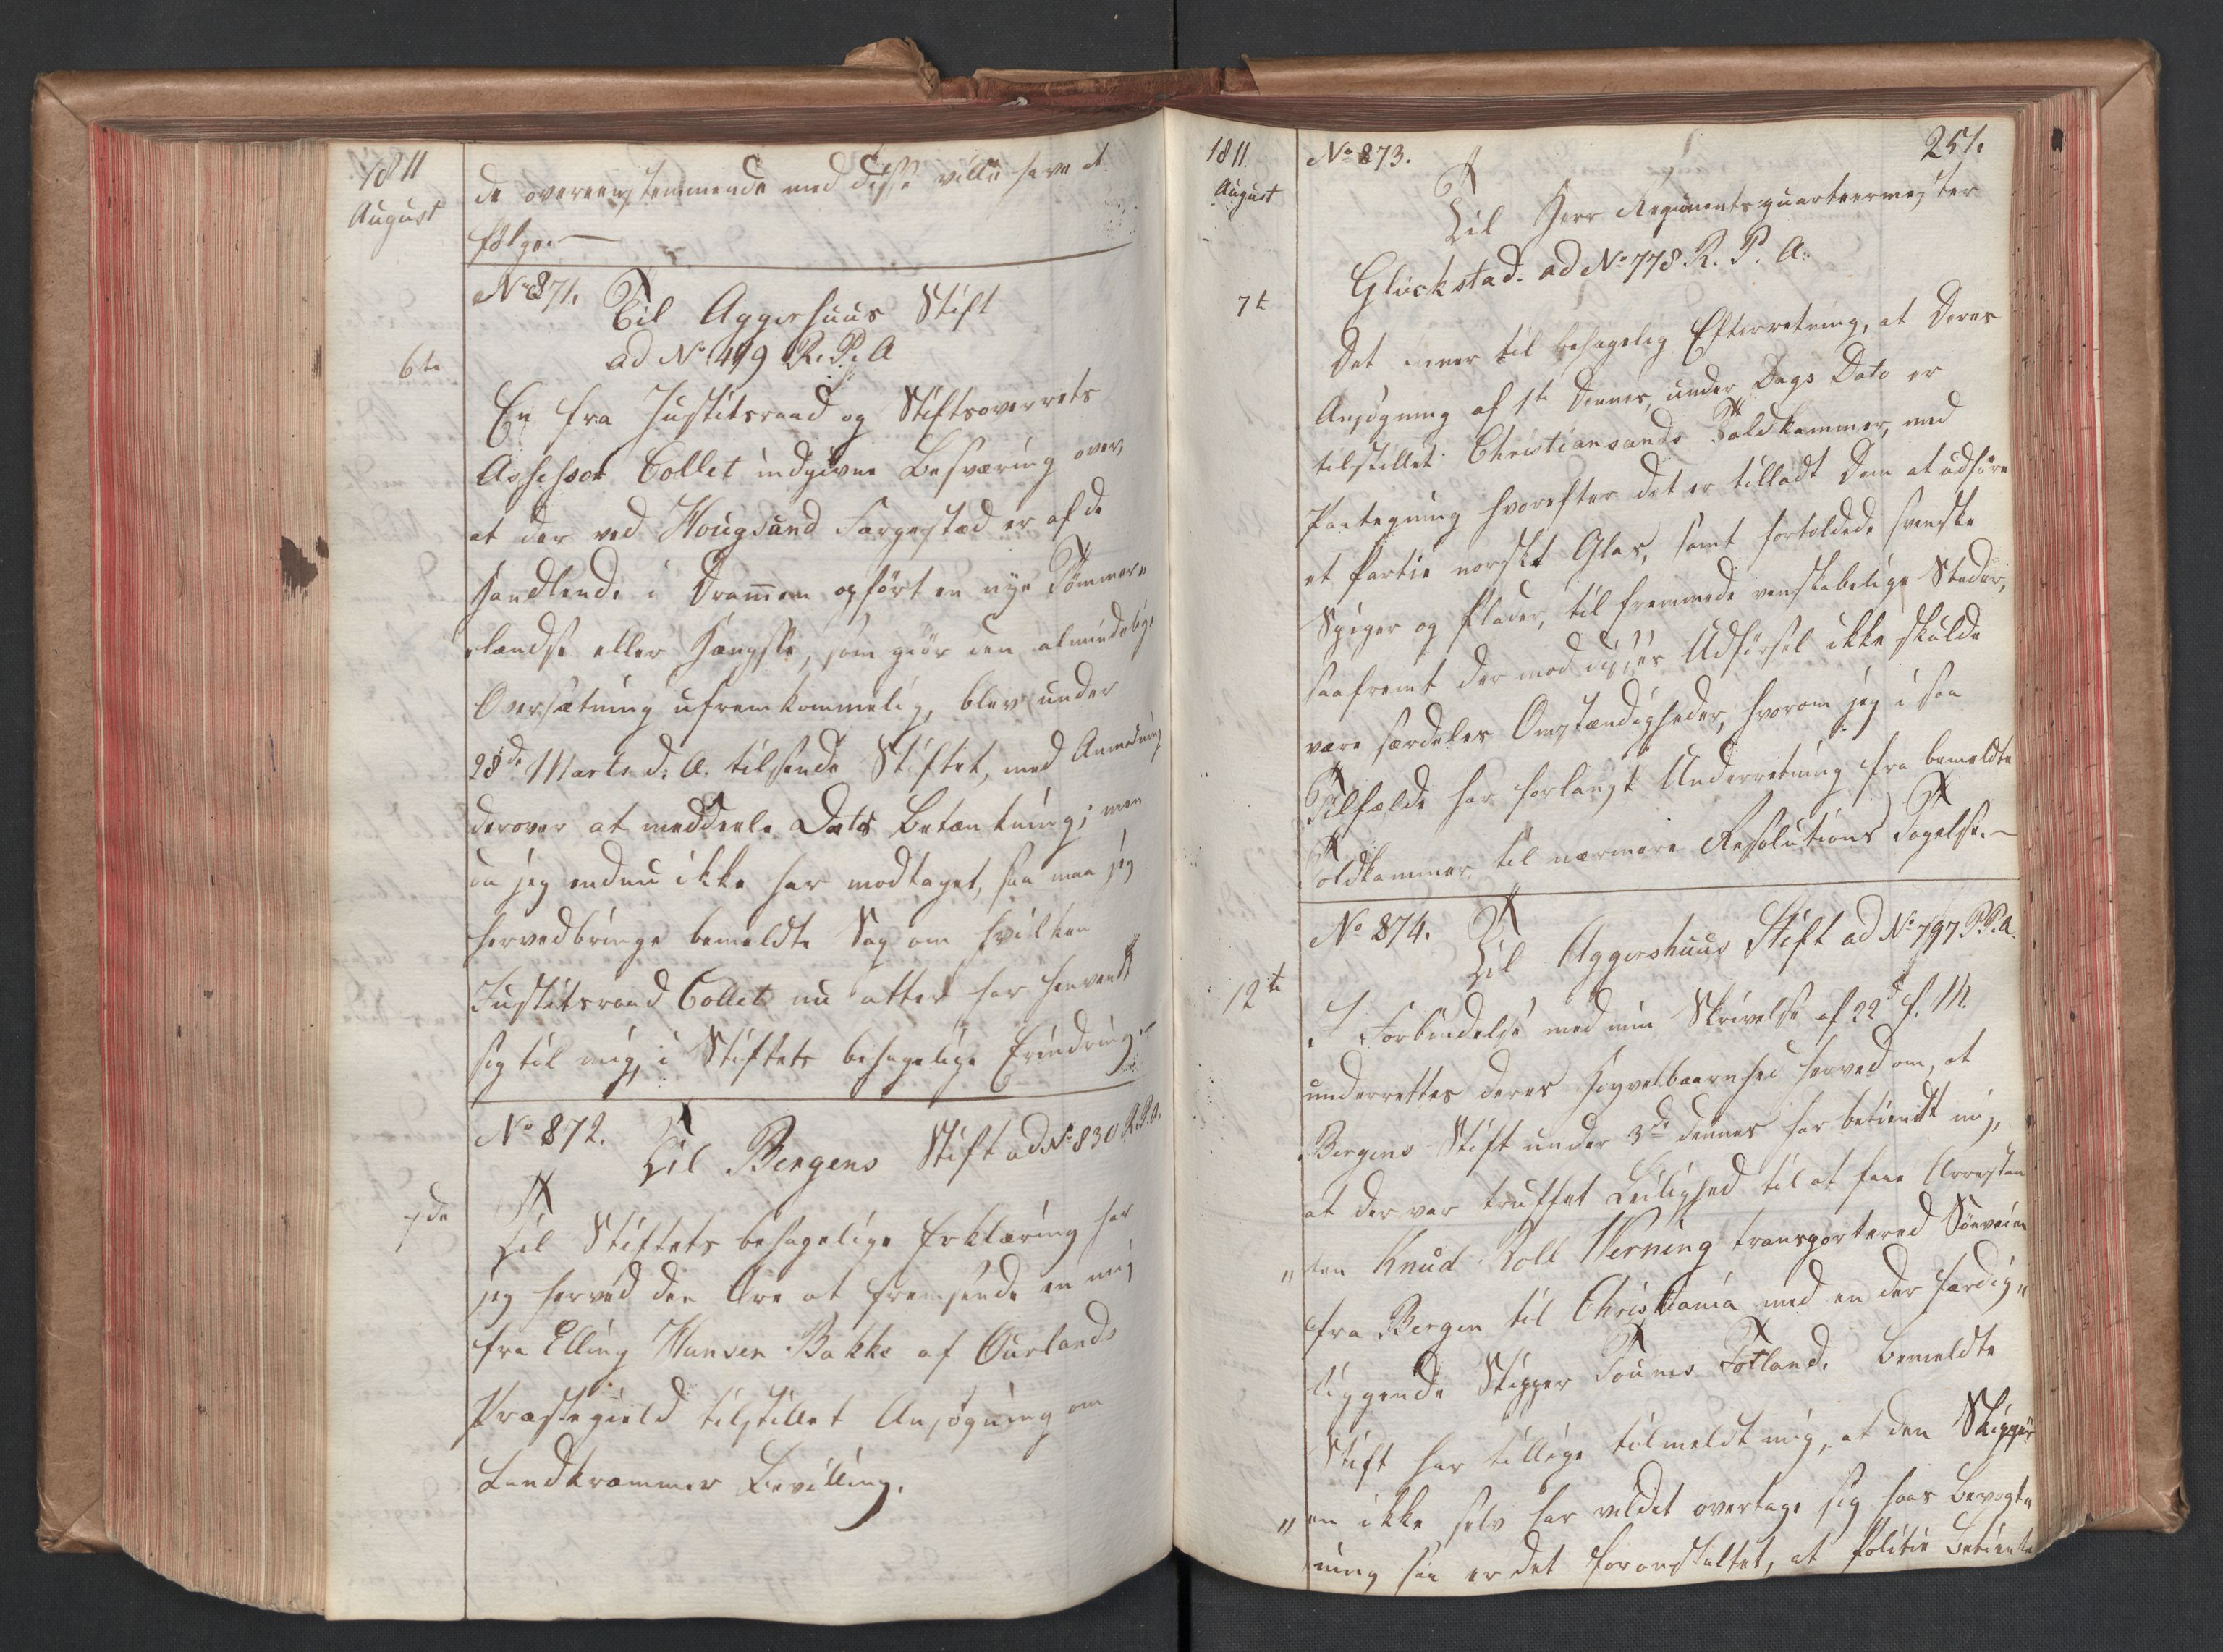 1811
August
de overeensstemmende med disse ville have at
følge.—
No 871.
Til Aggershuus Stift
6te
ad No 499 R. P. A
En fra Justitsraad og Stiftsoverrets
Assessor Collet indgivne Besværing over,
at der ved Hougsund Færgestæd er af de
Handlende i Drammen opført en nye Tømmer„
lændse eller Hængsle, som giør den almindelige
Oversætning ufremkommelig, blev under
28de Marts d: A. tilsendt Stiftet, med Anmodning
derover at meddeele Dets Betænkning; men
da jeg endnu ikke har modtaget, saa maa jeg
herved bringe bemeldte Sag om hvilken
Justitsraad Collet nu atter har henvendt
sig til mig, i Stiftets behagelige Erindring.—
No 872. Til Bergens Stift ad No 830 R. P. A.
7de
Til Stiftets behagelige Erklæring har
jeg herved den Ære at fremsende en mig
fra Elling Hansen Bakke af Ourlands
Præstegield tilstillet Ansøgning om
Landkrammer Bevilling.
1811.
August
No 873.
251.
Til Herr Regimentsquarteermester
Glückstad. ad No 778 R. P. A.
7t
Det meer til behagelig Efterretning, at Deres
Ansøgning af 1te dennes, under Dags Dato er
tilstillet Christiansands Toldkammer, med
Paategning hvorefter det er tilladt Dem at udføre
et Partie norskt Glas, samt fortoldede svenske
Spiger og Plader, til fremmede venskabelige Steder,
saafremt der mod disses Udførsel ikke skulde
være særdeles Omstændigheder, hvorom jeg i saa
Tilfælde har forlangt Underretning fra bemeldte
Toldkammer til nærmere Resolutions Tagelse.—
No 874.
Til Aggershuus Stift ad No 797 R. P. A.
12te
I Forbindelse med min Skrivelse af 22d f. M.
underrettes deres Høyvelbaarenhed herved om, at
Bergens Stift under 3de dennes har betiendt mig,
at der var truffet Leilighed til at faae Arrestan
„ten Knud Roll Werning transportered Søeveien
fra Bergen til Christiania med en der færdig„
liggende Skipper Tounes Totland. Bemeldte
Stift har tillige tilmeldt mig, at den Skipper
„en ikke selv har vildet overtage sig hans Bevogt„
ning saa er det foranstaltet, at Politie Betiente